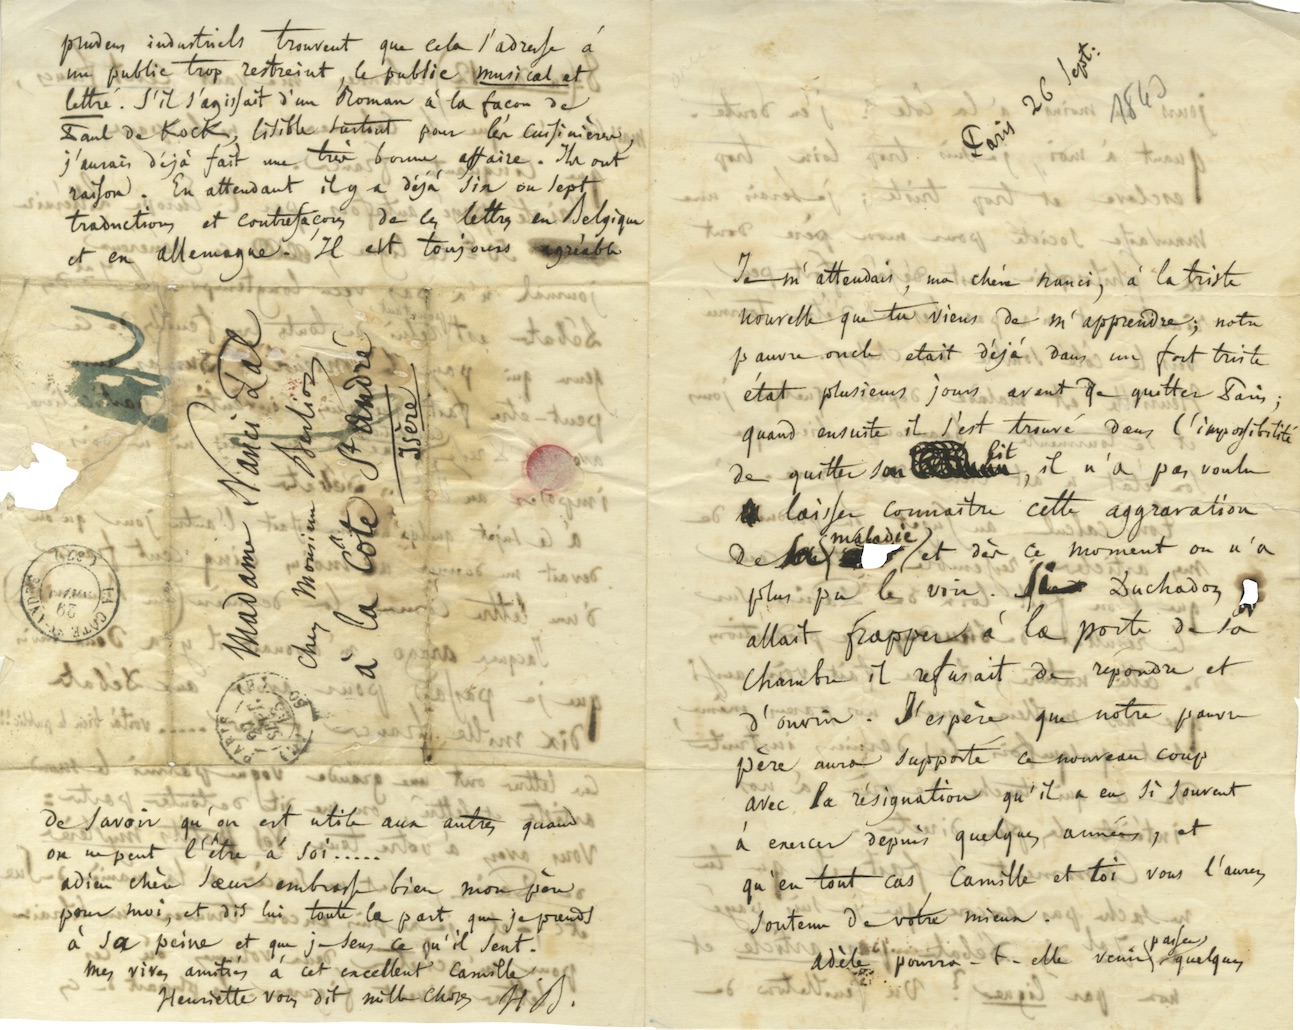 Paris 26 Sept:
1843
Je m'attendais, ma chère nanci, à la triste
nouvelle que tu viens de m'apprendre; notre
pauvre oncle etait déjà dans un fort triste
état plusieurs jours avant de quitter Paris;
quand ensuite il s'est trouvé dans l'impossibilité
de quitter son lit, il n'a pas voulu
laisser connaitre cette aggravation
de sa maladie et dès ce moment on n'a
plus pu le voir. Si Duchadoz
allait frapper à la porte de sa
chambre il refusait de repondre et
d'ouvrir. J'espère que notre pauvre
père aura supporté ce nouveau coup
avec la résignation qu'il a eu si souvent
à exercer depuis quelques années, et
qu'en tout cas, Camille et toi vous l'aurez
soutenu de votre mieux.
adèle pourra-t-elle venir passer quelques
prudens industriels trouvent que cela s'adresse à
un public trop restreint, le public musical et
lettré. S'il s'agissait d'un Roman à la façon de
Paul de Kock, lisible surtout pour les cuisinières,
j'aurais déjà fait une très bonne affaire. Ils ont
raison. En attendant il y a déjà six ou sept
traductions et contrefaçons de ces lettres en Belgique
et en allemagne. Il est toujours agréable
Madame Nanci Pal
chez Monsieur Berlioz
à la Côte St andré
Isère
LA COTE ST ANDRE
29
PARIS
de savoir qu'on est utile aux autres quand
on ne peut l'être à soi.....
adieu chère sœur embrasse bien mon père
pour moi, et dis lui toute la part que je prends
à sa peine et que je sens ce qu'il sent.
Mes vives amitiés à cet excellent Camille
Henriette vous dit mille choses H B.